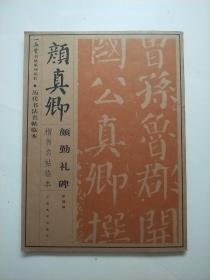 历代书法名帖临本
颜真卿
颜勤礼碑
楷书名帖临本
曾孫魯郡開
國公真卿撰